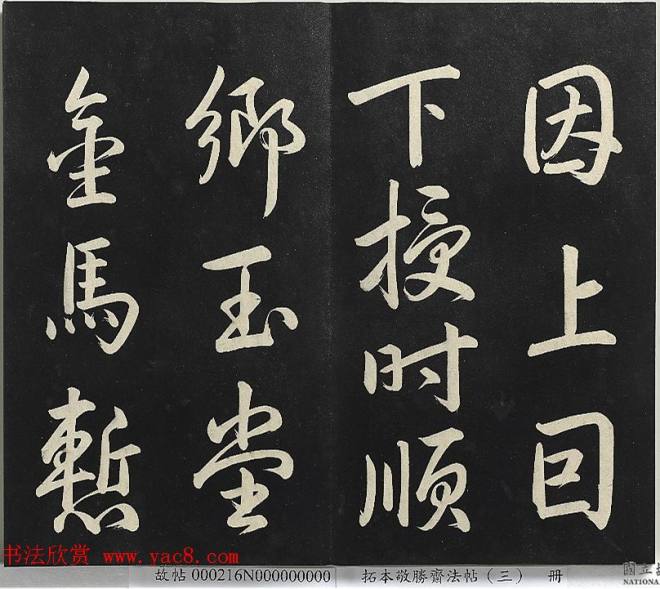 因上回
下授时順
鄉玉堂
金馬慙
书法欣赏 www.yac8.com
故帖 000216N000000000 拓本敬勝齋法帖（三） 冊
國立
NATIONAL